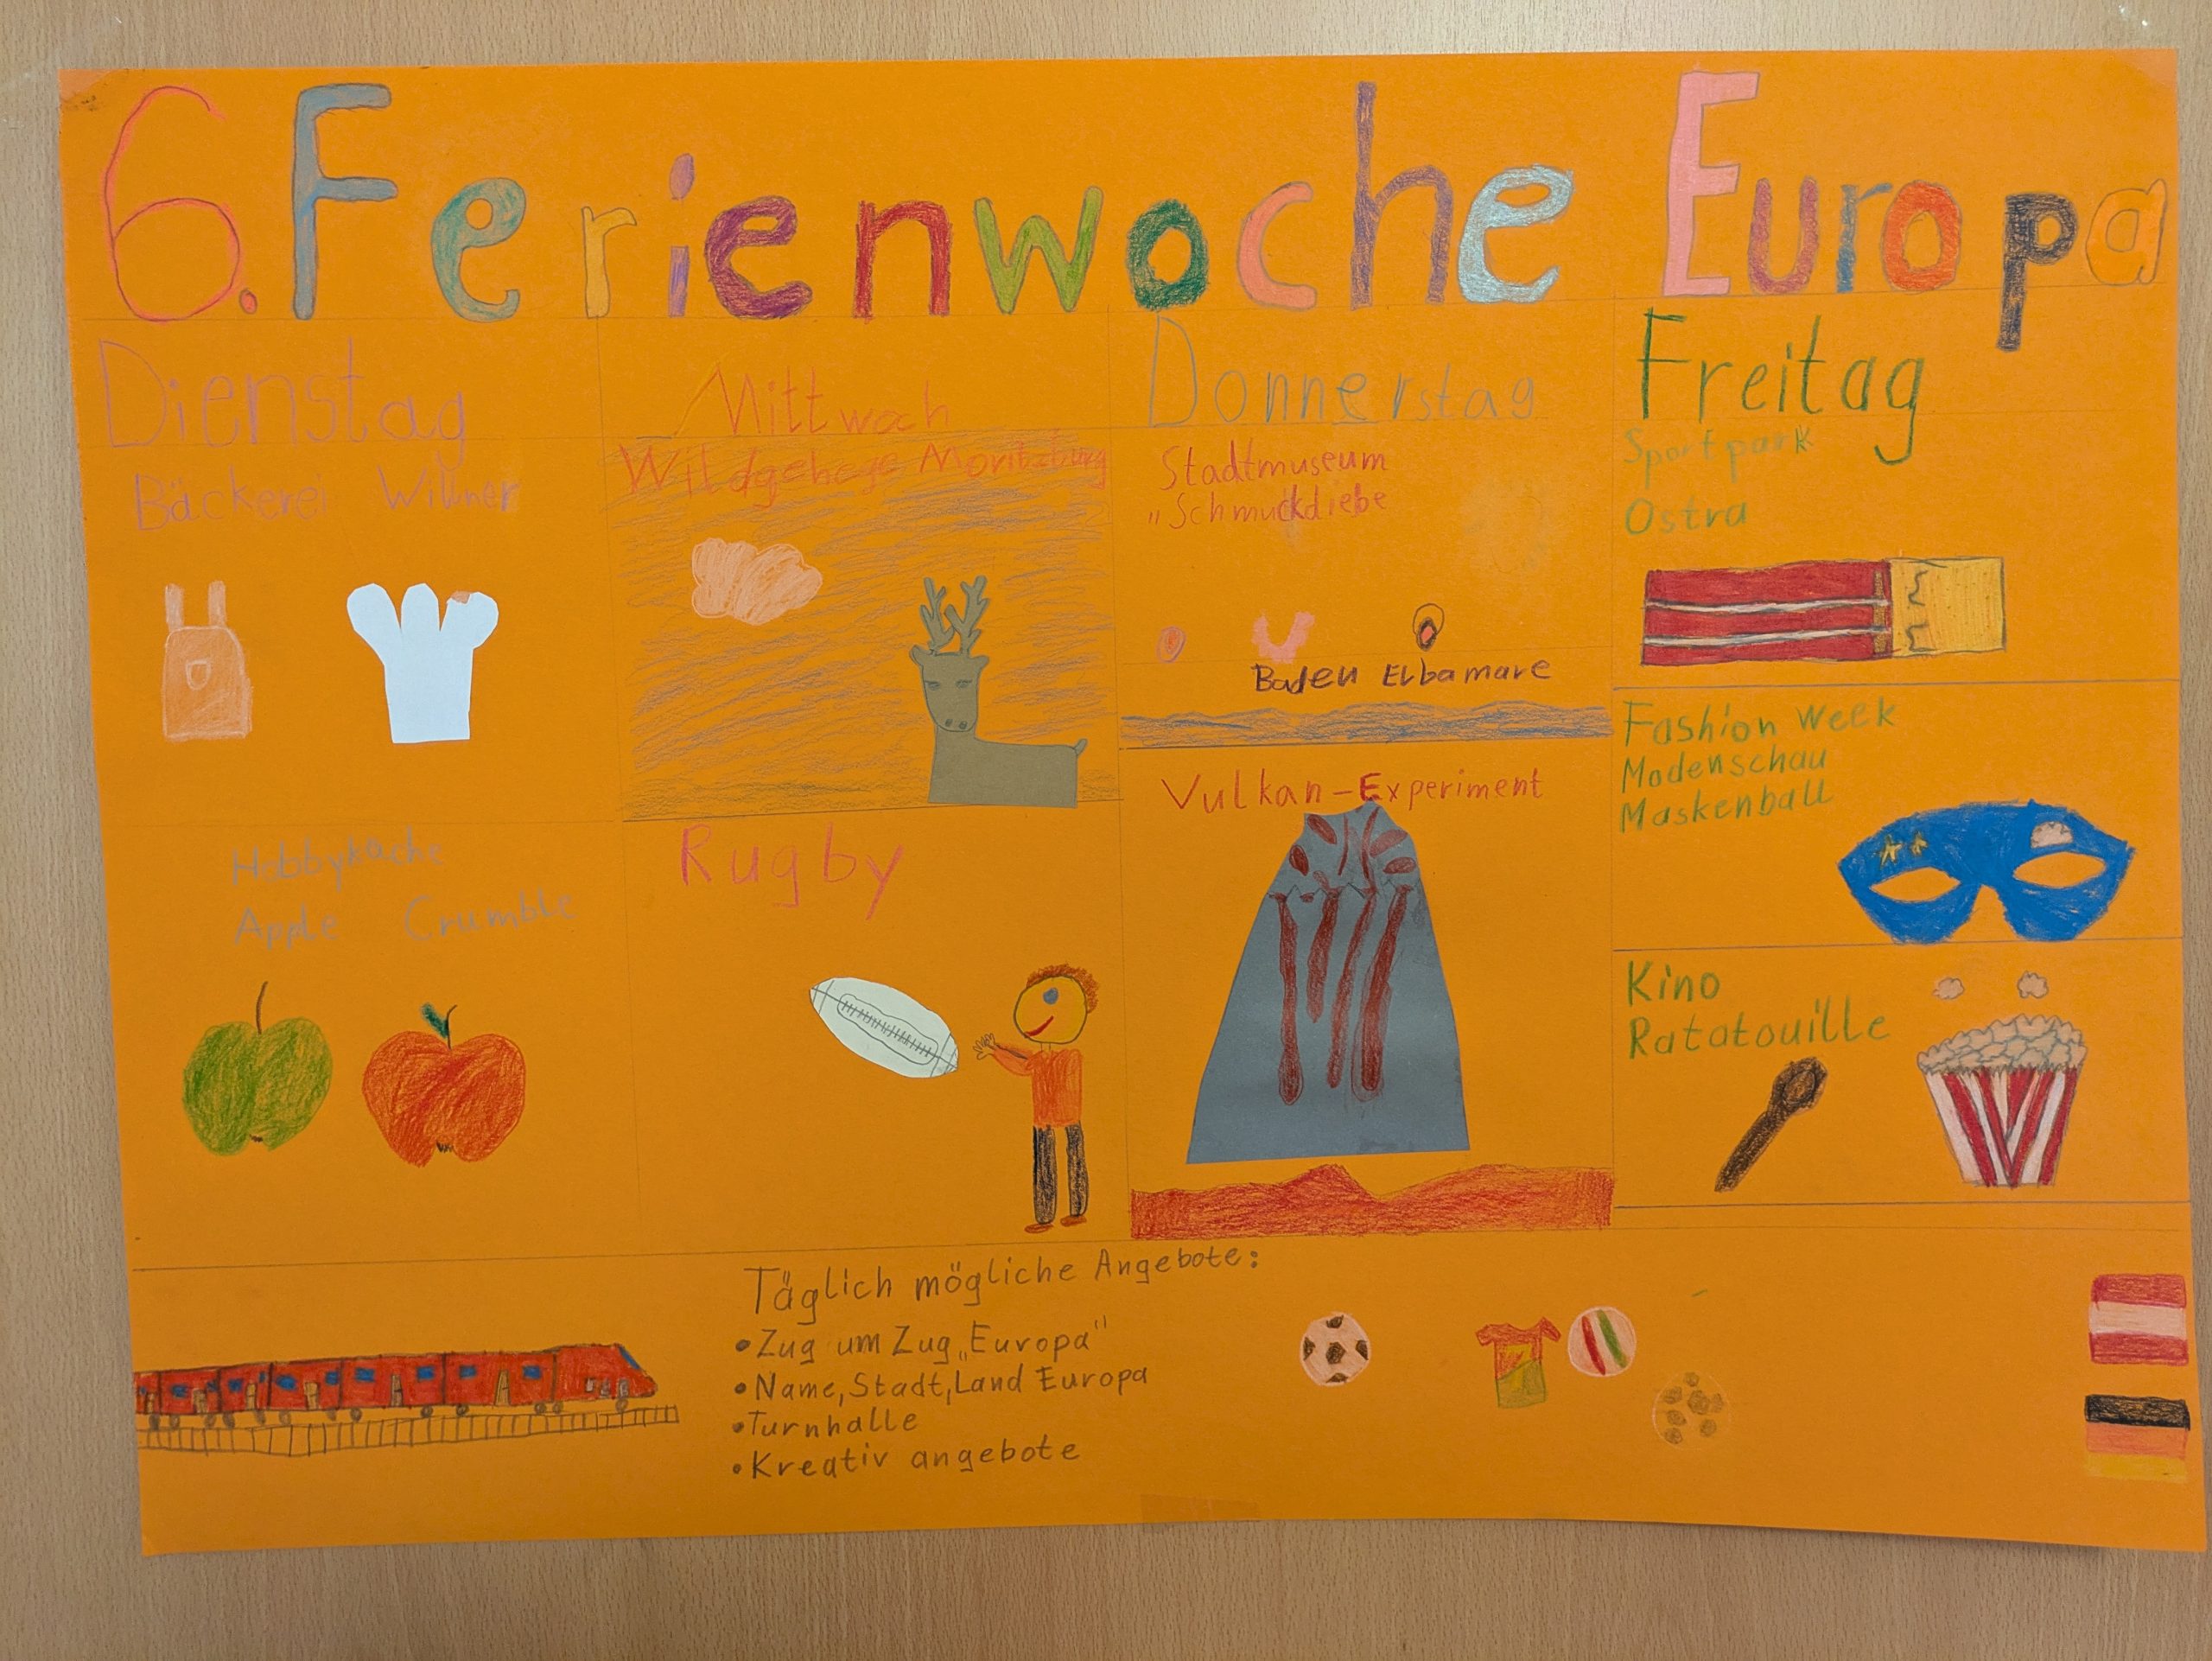 6. Ferienwoche Europa
Dienstag
Bäckerei Willner
Hobbyküche
Apple Crumble
Mittwoch
Wildgehege Moritzburg
Rugby
Donnerstag
Stadtmuseum
„Schmuckdiebe
Baden Elbamare
Vulkan-Experiment
Freitag
Sportpark
Ostra
Fashion Week
Modenschau
Maskenball
Kino
Ratatouille
Täglich mögliche Angebote:
• Zug um Zug „Europa"
• Name, Stadt, Land Europa
• Turnhalle
• Kreativ angebote